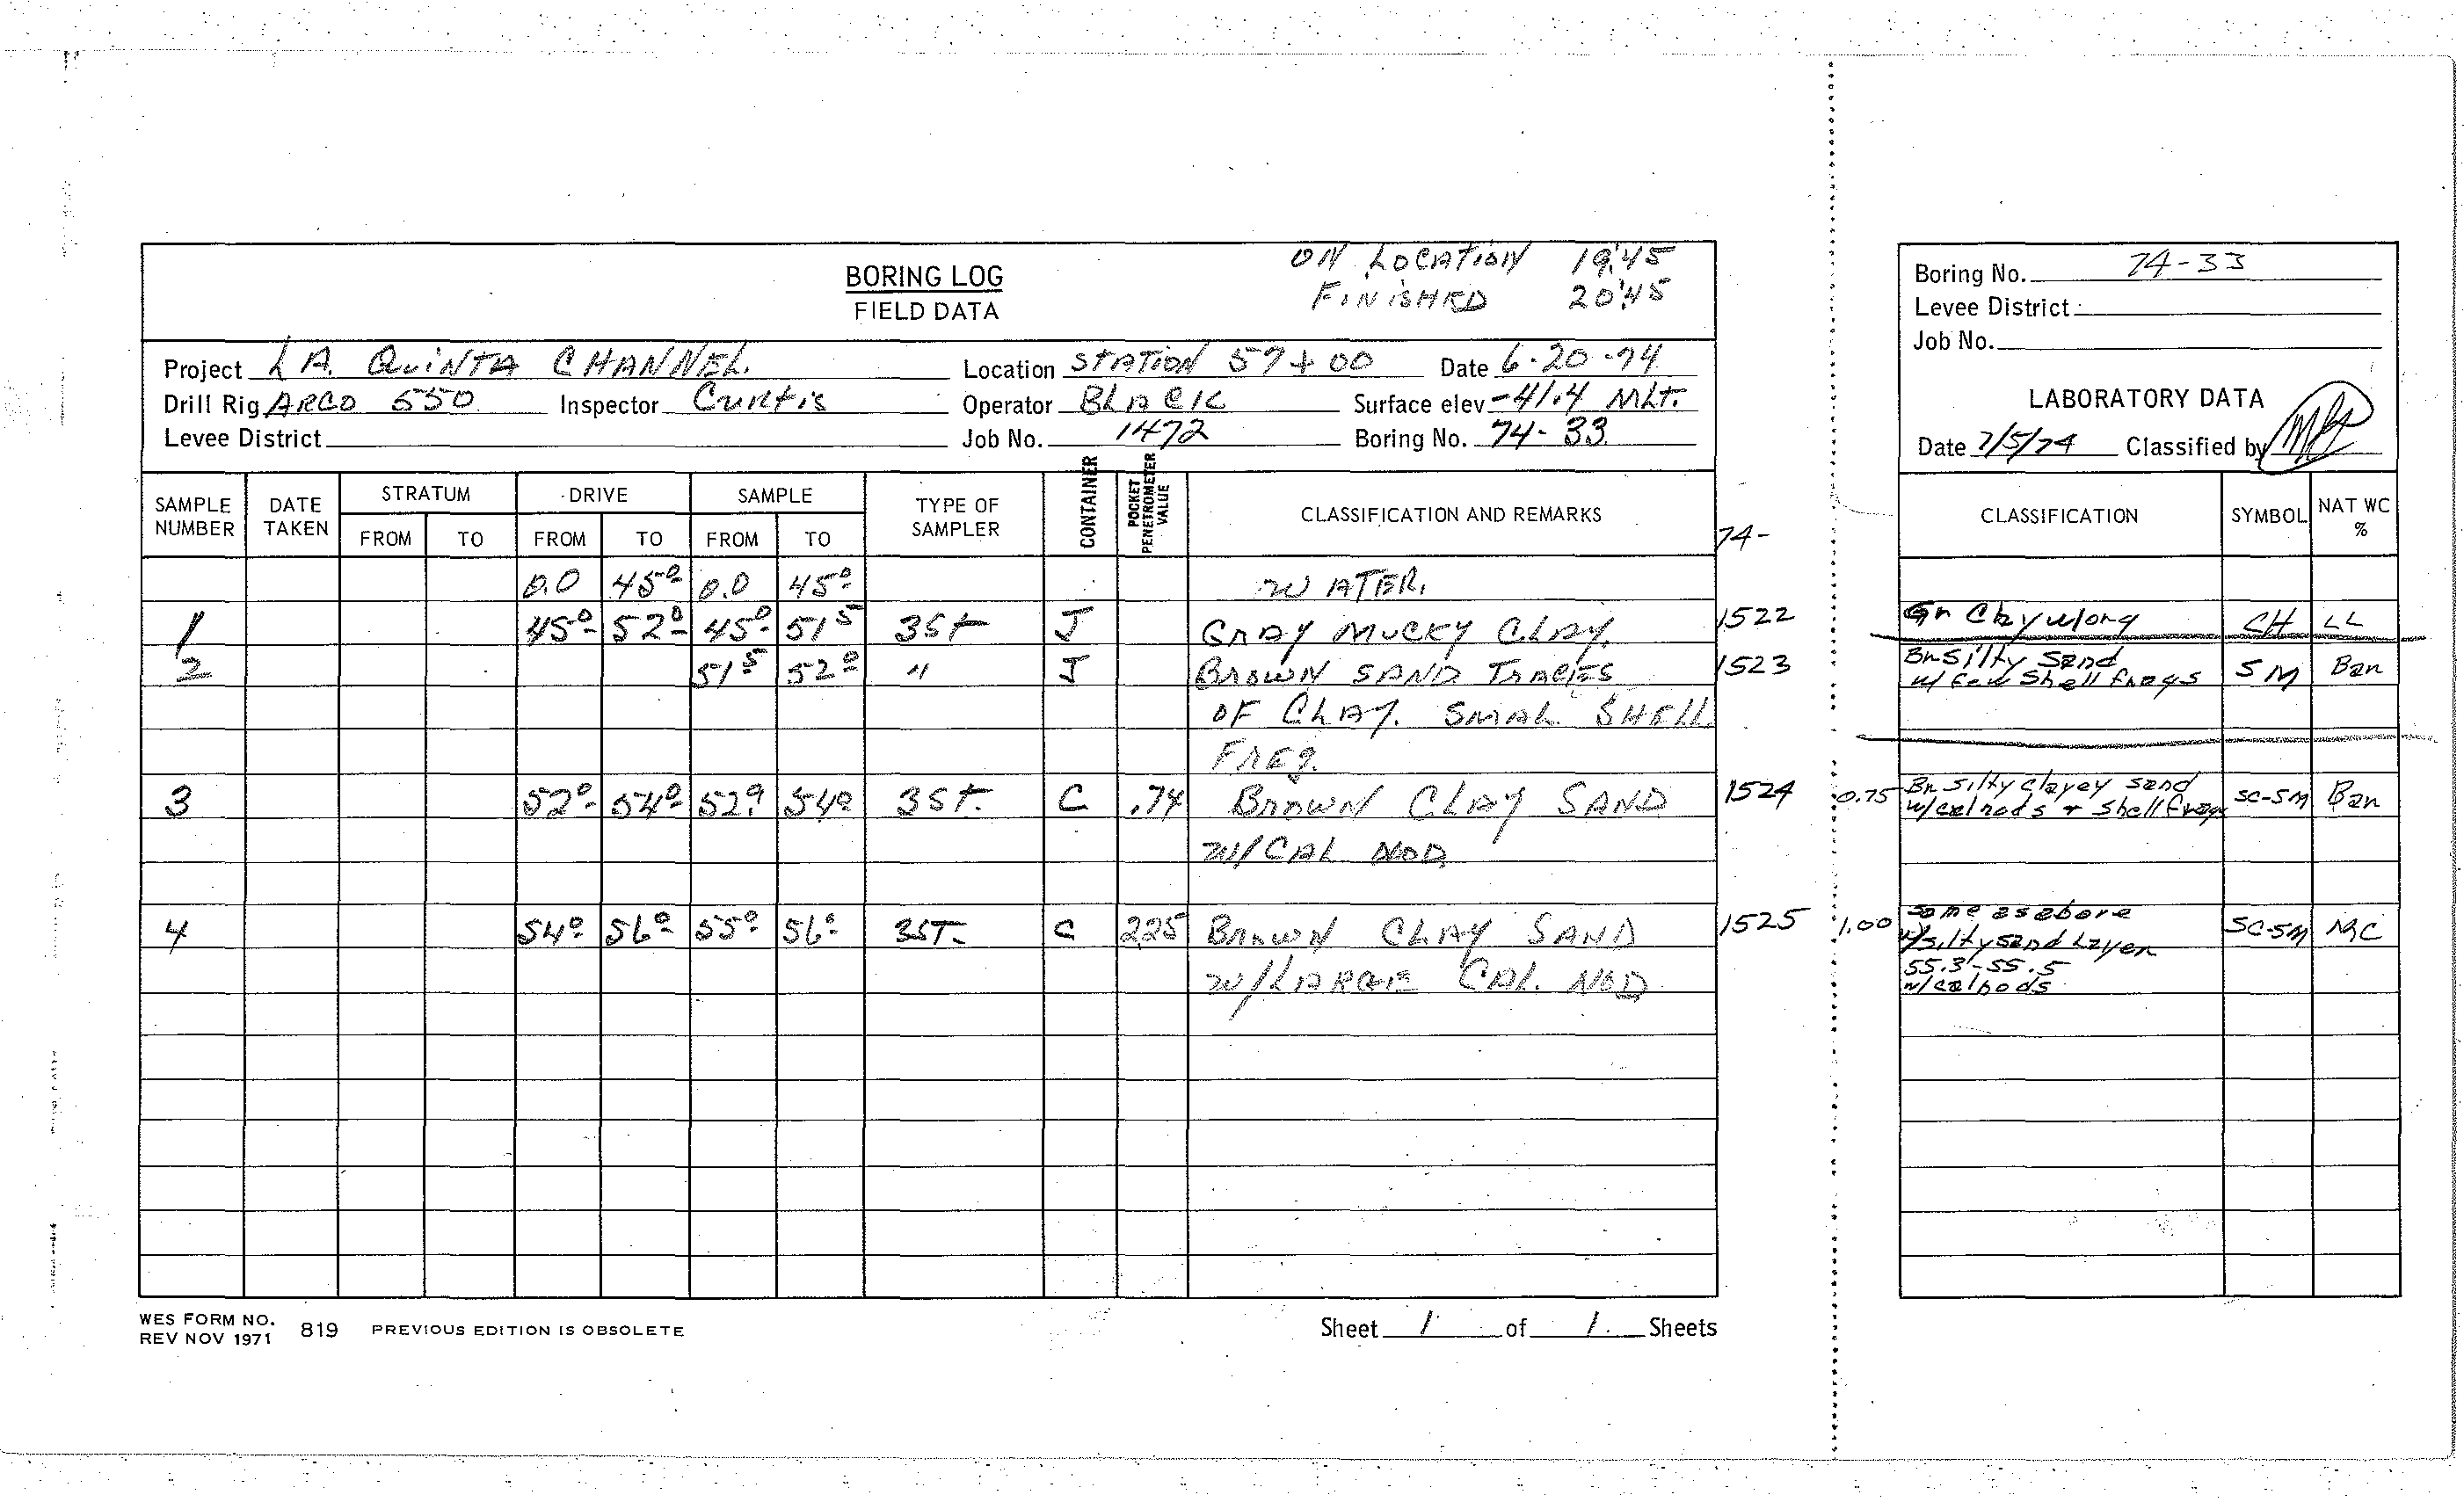 ON LOCATION 19:45
BORING LOG
FINISHED 20:45
FIELD DATA
Project LA. QuiNTA CHANNEL. Location STATION 57+00 Date 6-20-74
Drill Rig ARCO 550 Inspector Curtis Operator BLACK Surface elev -41.4 MLT.
Levee District Job No. 1472 Boring No. 74-33
SAMPLE NUMBER DATE TAKEN STRATUM FROM TO DRIVE FROM TO SAMPLE FROM TO TYPE OF SAMPLER CONTAINER POCKET PENETROMETER VALUE CLASSIFICATION AND REMARKS 74-
0.0 45⁰ 0.0 45⁰ WATER.
1 45⁰ 52⁰ 45⁰ 51⁵ 3St J GRAY MUCKY CLAY. 1522
2 51⁵ 52⁰ " J BROWN SAND TRACES 1523
OF CLAY. SMAL SHELL
FREG.
3 52⁰ 54⁰ 54⁰ 3ST. C .74 BROWN CLAY SAND 1524
W/CAL NOD
4 54⁰ 56⁰ 55⁰ 56⁰ 3ST. C 2.25 BROWN CLAY SAND 1525
W/LARGE CAL. NOD
WES FORM NO. 819 PREVIOUS EDITION IS OBSOLETE
REV NOV 1971
Sheet 1 of 1 Sheets
Boring No. 74-33
Levee District
Job No.
LABORATORY DATA
Date 7/5/74 Classified by
CLASSIFICATION SYMBOL NAT WC %
Gr Clay w/org CH LL
Br Silty Sand
w/ few Shell frags SM Ban
0.75 Br Silty clayey sand
w/cal nods + shell frags SC-SM Ban
1.00 Same as above
w/silty sand Layer SC-SM
55.3-55.5
w/calnods